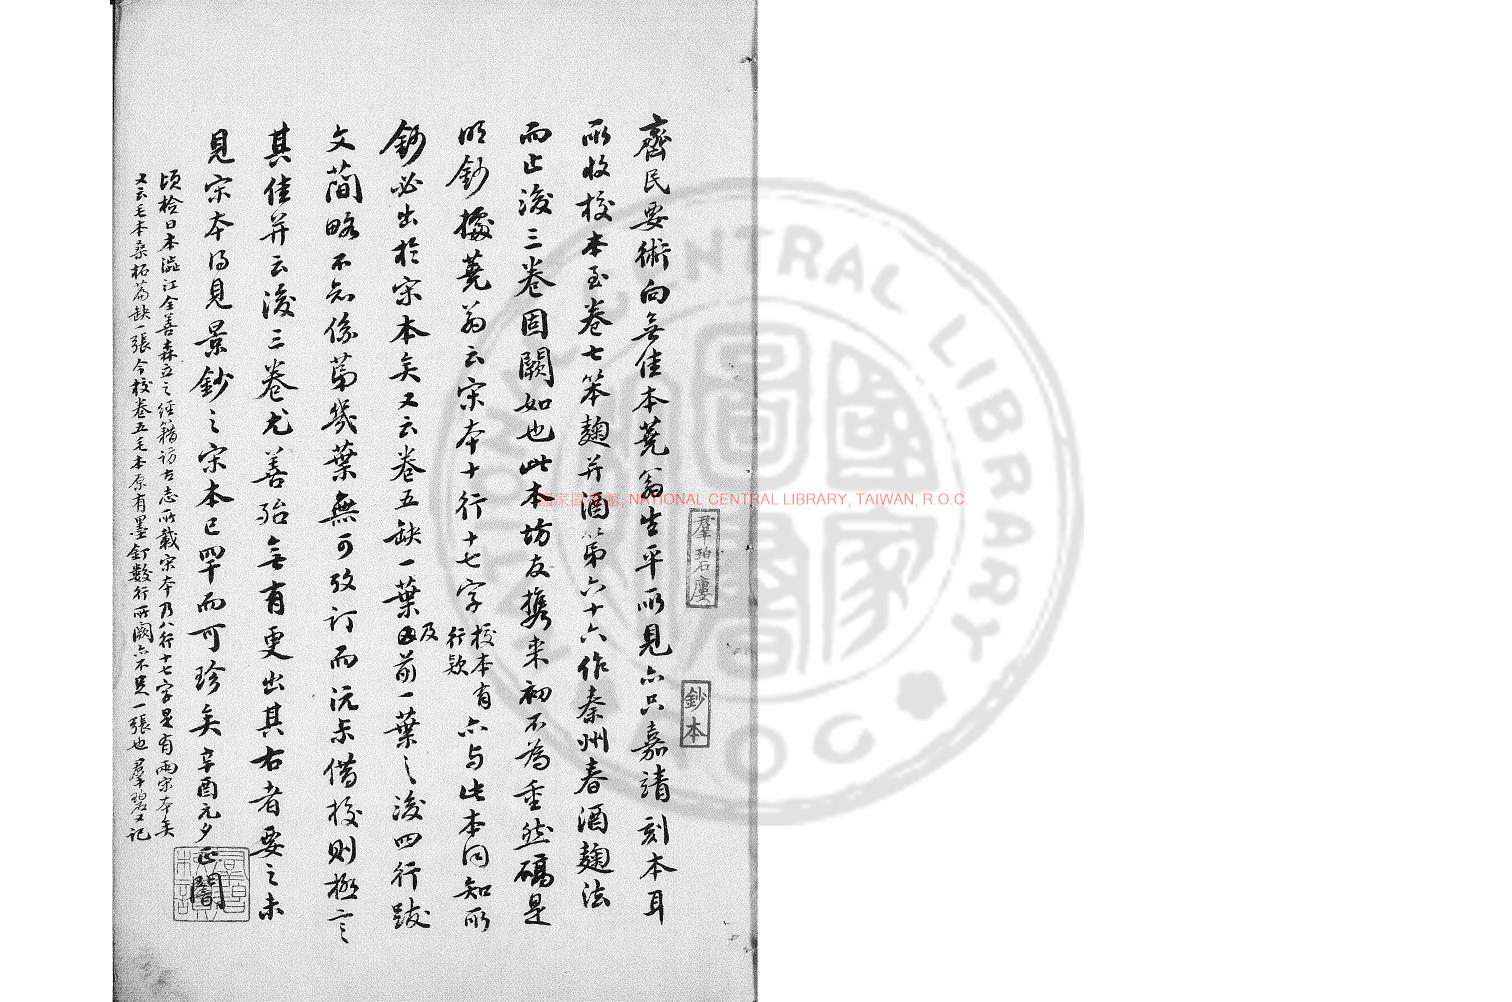 齊民要術向無佳本蕘翁生平所見亦只嘉靖刻本耳
所收校本至卷七笨麹并酒第六十六作秦州春酒麹法
而止後三卷固闕如也此本坊友携来初不為重然礭是
明鈔據蕘翁云宋本十行十七字校本有行款亦与此本同知所
鈔必出於宋本矣又云卷五缺一葉及前一葉之後四行跋
文蕳略不知係第幾葉無可攷订而沅未借校则極言
其佳并云後三卷尤善殆無有更出其右者要之未
見宋本得見景鈔之宋本已四千而可珍矣辛酉元夕正闇
頃检日本澁江全善森立之經籍访古志所載宋本乃八行十七字是有兩宋本矣
又云毛本桑柘篇缺一張今校卷五毛本原有墨釘數行所闕亦不足一張也 羣碧又记
羣碧廔
鈔本
國家圖書館, NATIONAL CENTRAL LIBRARY, TAIWAN, R.O.C.
NATIONAL CENTRAL LIBRARY
ROC